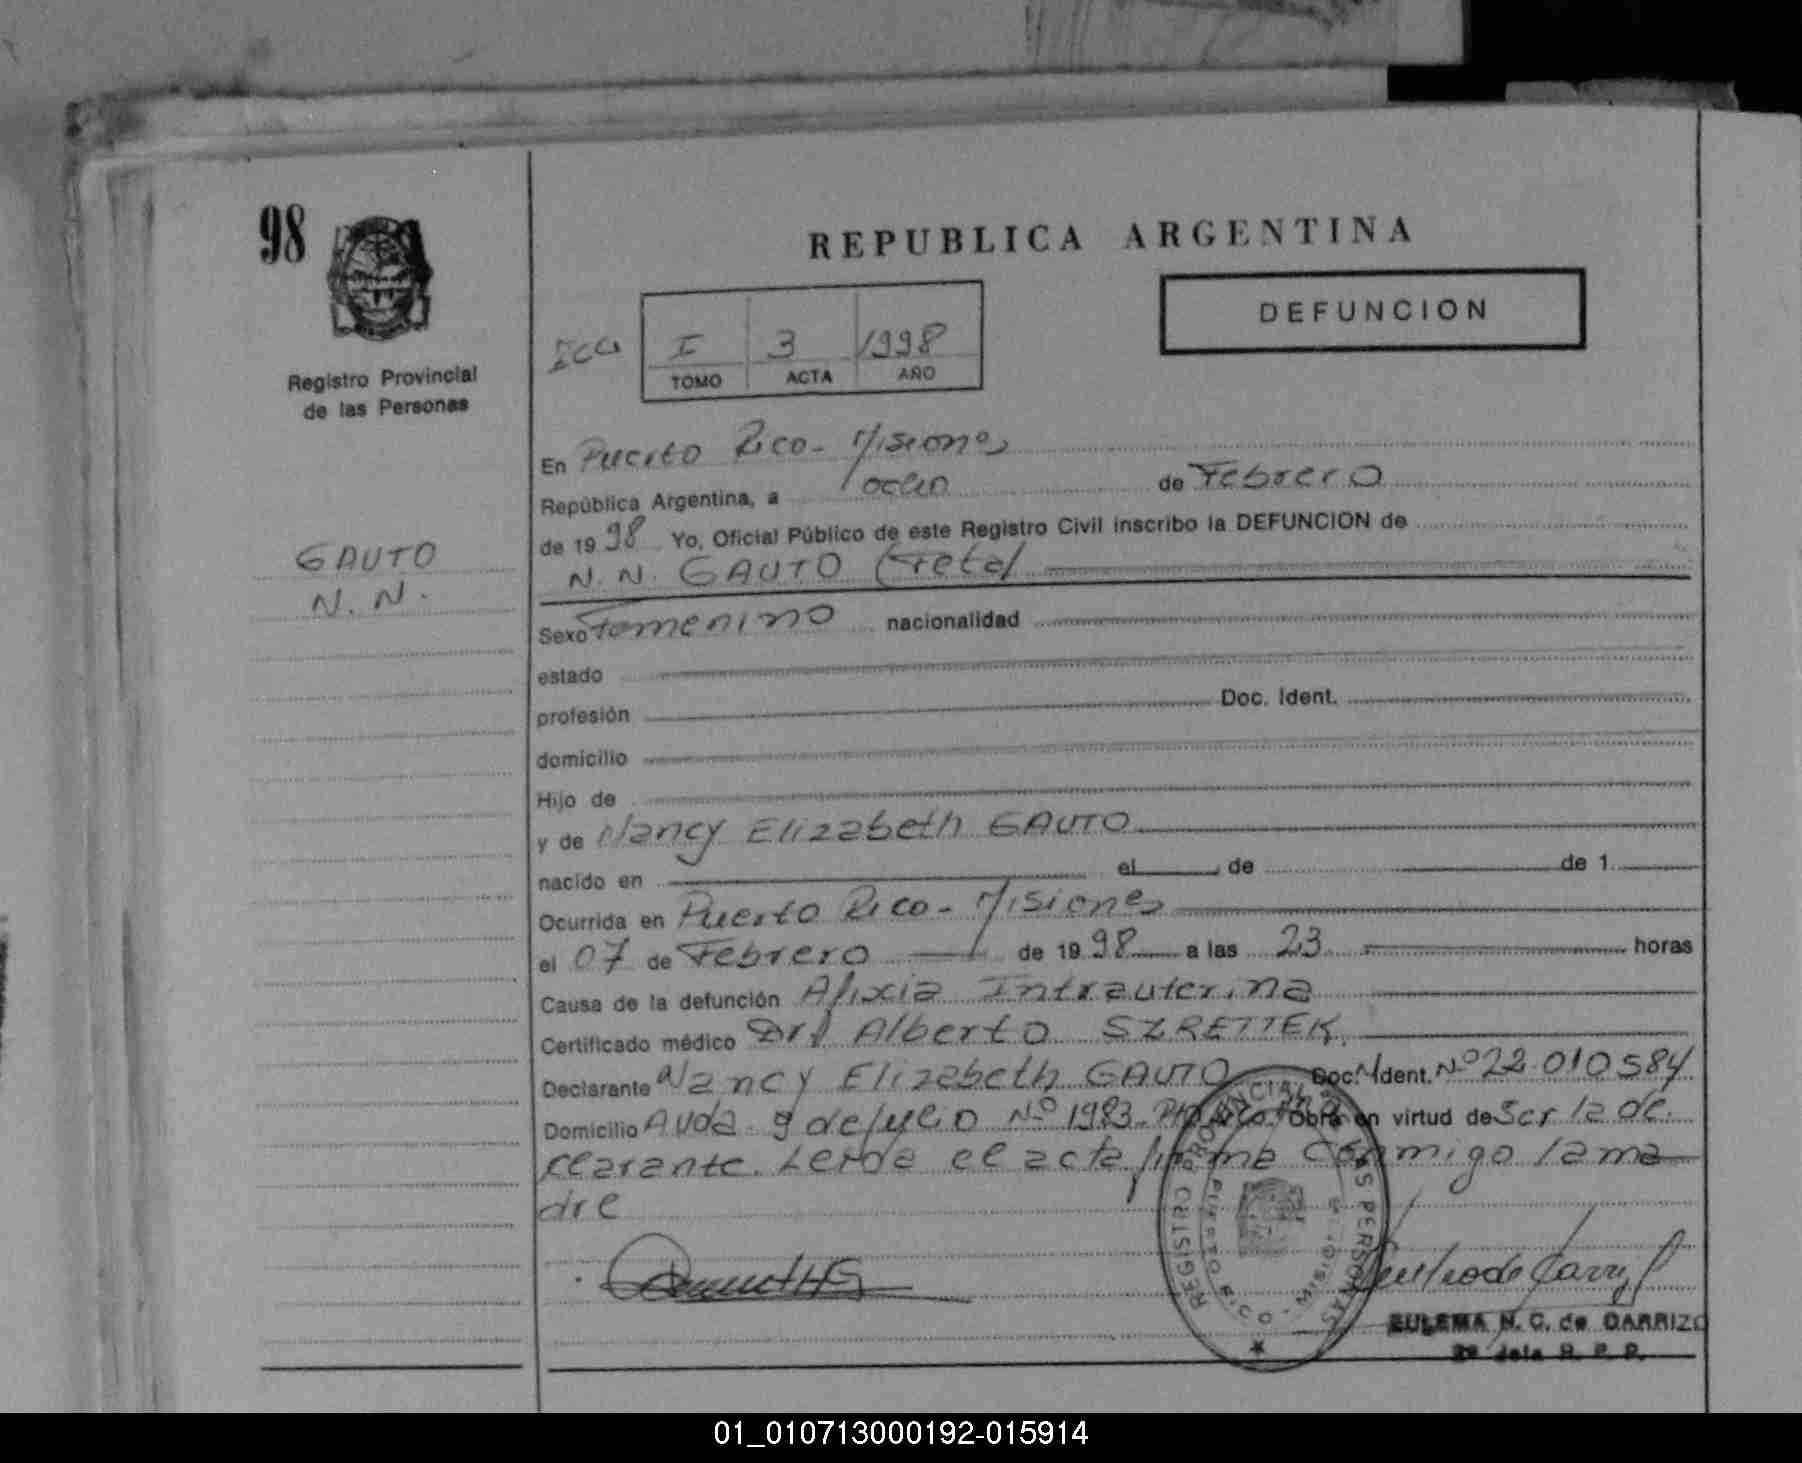 98
REPUBLICA ARGENTINA
DEFUNCION
I 3 1998
TOMO ACTA AÑO
Registro Provincial
de las Personas
En Puerto Rico - Misiones
República Argentina, a ocho de Febrero
de 1998 Yo, Oficial Público de este Registro Civil inscribo la DEFUNCION de
N.N. GAUTO (Feto)
GAUTO
N. N.
Sexo Femenino nacionalidad
estado
profesión Doc. Ident.
domicilio
Hijo de
y de Nancy Elizabeth GAUTO
nacido en el de de 1
Ocurrida en Puerto Rico - Misiones
el 07 de Febrero de 1998 a las 23 horas
Causa de la defunción Afixia Intrauterina
Certificado médico Dr. Alberto SZRETTEK
Declarante Nancy Elizabeth GAUTO Doc. Ident. Nº 22.010584
Domicilio Avda 9 de Julio Nº 1983 Pto Rico Obra en virtud de Ser la de
clarante. Leida el acta firma conmigo la ma
dre
REGISTRO PROVINCIAL DE LAS PERSONAS
PUERTO RICO - MISIONES
ZULEMA N. C. de CARRIZO
R. P. P.
01_010713000192-015914